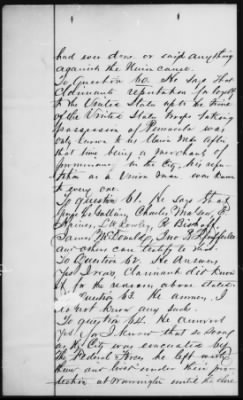 had ever done or said anything
against the Union cause.
To Question 60. He says that
Claimants reputation for loyalty
to the United States up to the time
of the United States troops taking
possession of Pensacola was
only known to his Union men after
that time being a merchant of
prominence in the City, his repu-
tation as a Union man was known
to every one.
To question 61. He says that
Charles
James
and others can testify to that
To Question 62. He Answers,
Yes I was, Claimant did know
it for the reasons above stated
question 63. He answers, I
do not know any such.
To question 64. He answered
Yes for I know that so soon
as the City was evacuated by
the Federal forces he left with
them and lived under their pro-
tection at Warrington until the close